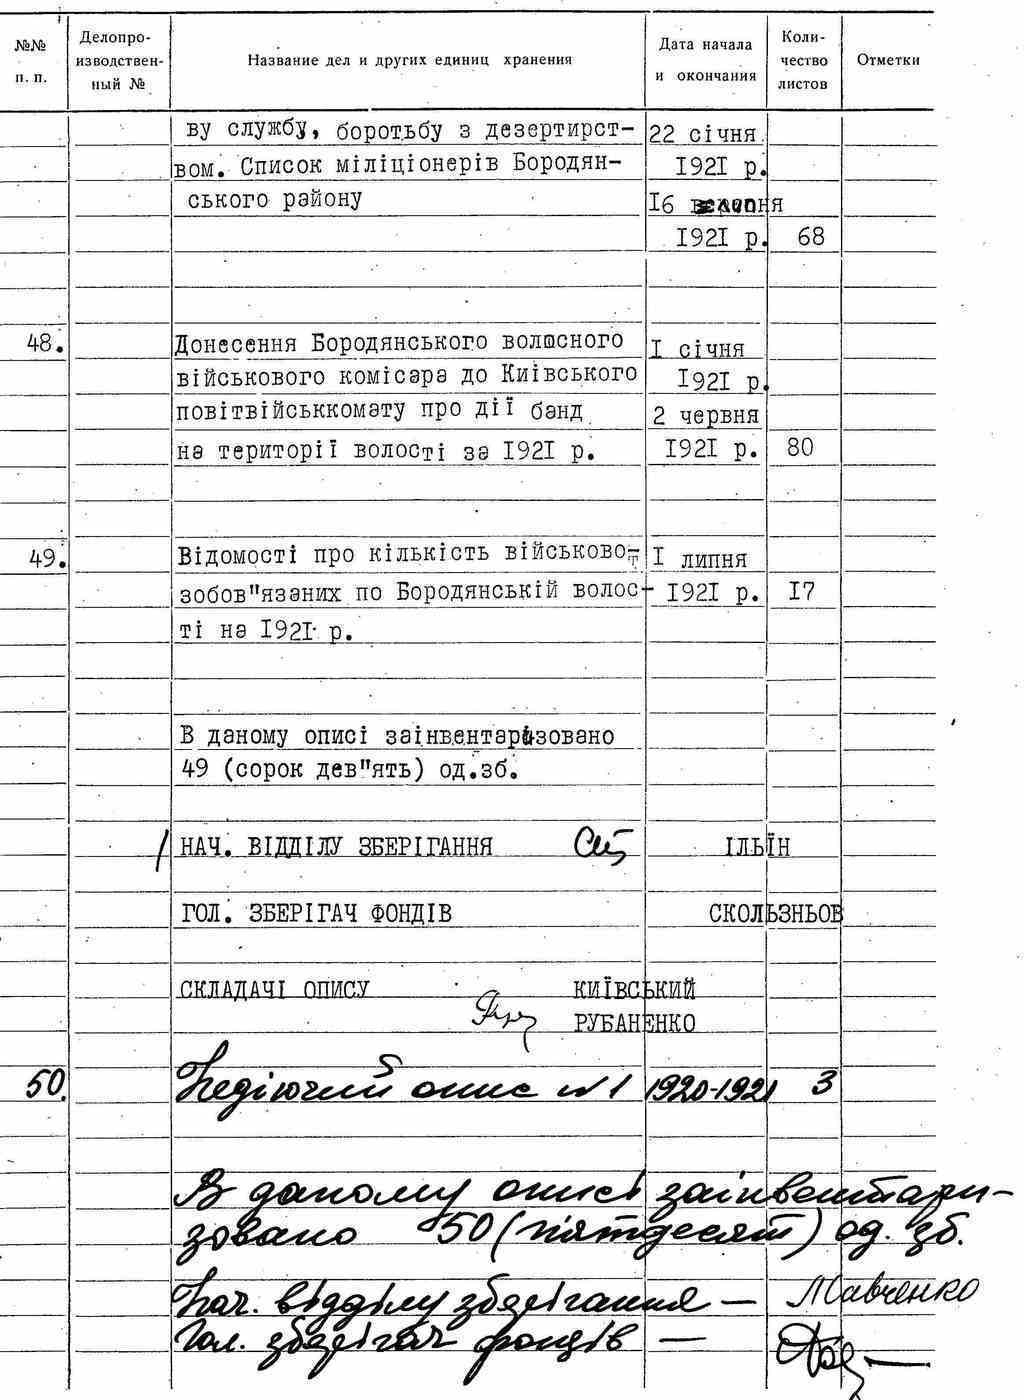 №№ п. п. Делопро-изводствен-ный № Название дел и других единиц хранения Дата начала и окончания Коли-чество листов Отметки
ву службу, боротьбу з дезертирст- 22 січня
вом. Список міліціонерів Бородян- 1921 р.
ського району 16
1921 р. 68
48. Донесення Бородянського волосного I січня
військового комісара до Київського 1921 р.
повітвійськкомату про дії банд 2 червня
на території волості за 1921 р. 1921 р. 80
49. Відомості про кількість військово- I липня
зобов"язаних по Бородянській волос- 1921 р. 17
ті на 1921 р.
В даному описі заінвентаризовано
49 (сорок дев"ять) од.зб.
НАЧ. ВІДДІЛУ ЗБЕРІГАННЯ ІЛЬЇН
ГОЛ. ЗБЕРІГАЧ ФОНДІВ СКОЛЬЗНЬОВ
СКЛАДАЧІ ОПИСУ КИЇВСЬКИЙ
РУБАНЕНКО
50. Недіючий опис №1 1920-1921 3
В даному описі заінвентари-
зовано 50 (п'ятдесят) од. зб.
Нач. відділу зберігання —
Гол. зберігач фондів —